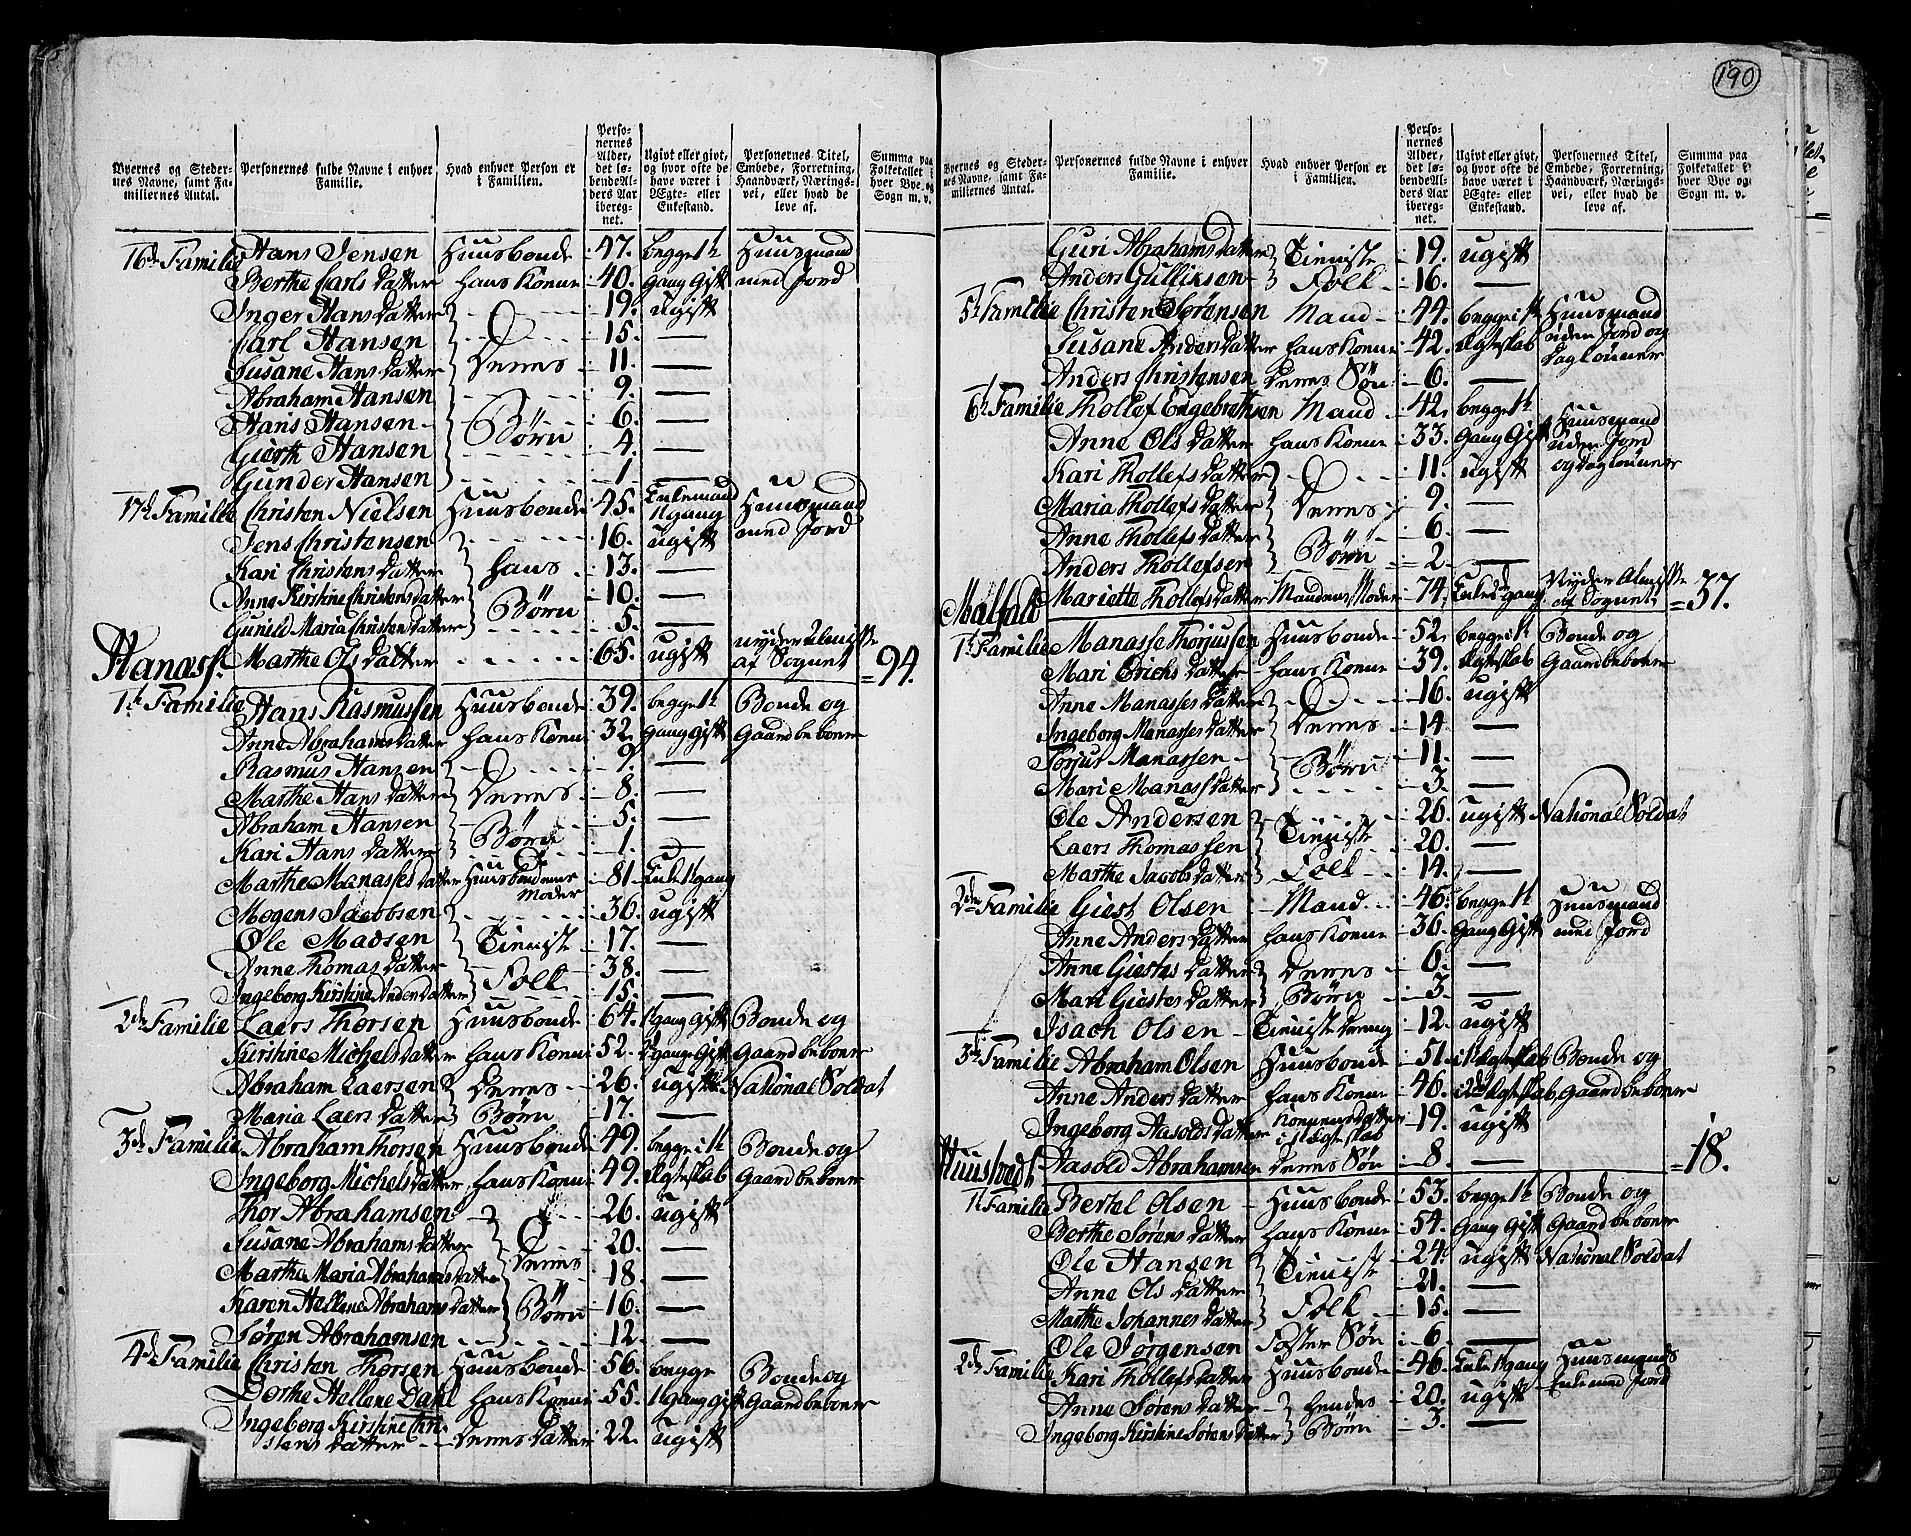 190
Byernes og Steder-nes Navne, samt Fa-miliernes Antal. Personernes fulde Navne i enhver Familie. Hvad enhver Person er i Familien. Perso-nernes Alder, det lø-bende Al-ders Aar iberegnet. Ugivt eller givt, og hvor ofte de have været i Ægte- eller Enkestand. Personernes Titel, Embede, Forretning, Haandværk, Nærings-vei, eller hvad de leve af. Summa paa Folketallet i hver Bye og Sogn m. v.
16de Familie Hans Jensen Huusbonde 47. begge 1te Huusmand
Berthe Carls datter hans Konne 40. Gang Gift med Jord
Inger Hans datter 19. ugift
Carl Hansen 15. —
Susane Hans datter Deres 11. —
Abraham Hansen 9. —
Hans Hansen 6. —
Gierth Hansen Børn 4. —
Gunder Hansen 1. —
17de Familie Christen Nielsen Huusbonde 45. Enkemand 1te gang Huusmand med Jord
Jens Christensen 16. ugift
Kari Christens datter hans 13. —
Anne Kirstine Christens datter Børn 10. —
Gunild Maria Christen datter 5. —
Marthe Ols datter 65. ugift nyder Almisse af Sognet = 94.
Hanass.
1te Familie Hans Rasmussen Huusbonde 39. begge 1te Bonde og
Anne Abrahams datter hans Konne 32. Gang Gift Gaardbeboer
Rasmus Hansen 9. —
Marthe Hans datter Deres 8. —
Abraham Hansen 5. —
Kari Hans datter Børn 1. —
Marthe Manasses datter Huusbondens Moder 81. Enke 1te gang
Mogens Jacobsen 36. ugift
Ole Madsen Tieniste 17. —
Anne Thomas datter Folk 38. —
Ingeborg Kirstine Anders datter 15. —
2de Familie Laers Thorsen Huusbonde 64. 1te Gang Gift Bonde og
Kirstine Michels datter hans Konne 52. gange Gift Gaardbeboer
Abraham Laersen Deres 26. ugift National Soldat
Maria Laers datter Børn 17. —
3de Familie Abraham Thorsen Huusbonde 49. begge i 1te Bonde og
Ingeborg Michels datter hans Konne 49. Egteskab Gaardbeboer
Thor Abrahamsen 26. ugift
Susane Abrahams datter 20. —
Marthe Maria Abrahams datter Deres 18. —
Karen Hellene Abrahams datter Børn 16. —
Søren Abrahamsen 12. —
4de Familie Christen Thorsen Huusbonde 56. begge Bonde og
Dorthe Hellene Dahl hans Konne 55. 1 Gang Gift Gaardbeboer
Ingeborg Kirstine Chri-
stens datter Deres datter 22. ugift
Byernes og Steder-nes Navne, samt Fa-miliernes Antal. Personernes fulde Navne i enhver Familie. Hvad enhver Person er i Familien. Perso-nernes Alder, det lø-bende Al-ders Aar iberegnet. Ugivt eller givt, og hvor ofte de have været i Ægte- eller Enkestand. Personernes Titel, Embede, Forretning, Haandværk, Nærings-vei, eller hvad de leve af. Summa paa Folketallet i hver Bye og Sogn m. v.
Guri Abrahams datter Tieniste 19. ugift
Anders Gulliksen Folk 16. —
5te Familie Christen Sørensen Mand 44. begge i 1te Huusmand
Susane Anders datter hans Konne 42. Egteskab uden Jord og
Anders Christensen Deres Søn 6. — Daglønner
6te Familie Thollef Engebrethsen Mand 42. begge 1te Huusmand
Anne Ols datter hans Konne 33. Gang Gift uden Jord
Kari Thollefs datter 11. ugift og daglønner
Maria Thollefs datter Deres 9. —
Anne Thollefs datter 6. —
Anders Thollefsen Børn 2. —
Mariette Thollefs datter Mandens Moder 74. Enke gang Nyder Almisse af Sognet = 37.
Malfald
1te Familie Manasse Thorjussen Huusbonde 52. begge i 1te Bonde og
Mari Erichs datter hans Konne 39. Egteskab Gaardbeboer
Anne Manasses datter 16. ugift
Ingeborg Manasses datter Deres 14 —
Torjus Manassen 11. —
Mari Manass datter Børn 3. —
Ole Andersen 26. ugift National Soldat
Laers Thomassen Tieniste 20. —
Marthe Jacobs datter Folk 14. —
2den Familie Giest Olsen Mand 46. begge 1te Huusmand
Anne Anders datter hans Konne 36. Gang Gift med Jord
Anne Giestes datter Deres 6. —
Mari Giestes datter Børn 3. —
Isach Olsen Tieniste dreng 12. ugift
3die Familie Abraham Olsen Huusbonde 51. i 1te Egteskab Bonde og
Anne Anders datter hans Konne 46. i 2det Egteskab Gaardbeboer
Ingeborg Aasolds datter Konnens datter i 1ste Egteskab 19. ugift
Aasold Abrahamsen Deres Søn 8. — = 18.
1te Familie Bertel Olsen Huusbonde 53. begge 1te Bonde og
Berthe Sørens datter hans Konne 54. Gang Gift Gaardbeboer
Ole Hansen 24. ugift National Soldat
Anne Ols datter Tieniste 21. —
Marthe Johannes datter Folk 15. —
Ole Jørgensen Foster Søn 6. —
2den Familie Kari Thollefs datter Huusbonde 46. Enke 1te gang Huusmands Enke med Jord
Anne Sørens datter hendes 20. ugift
Ingeborg Kirstine Sørens datter Børn 3. —